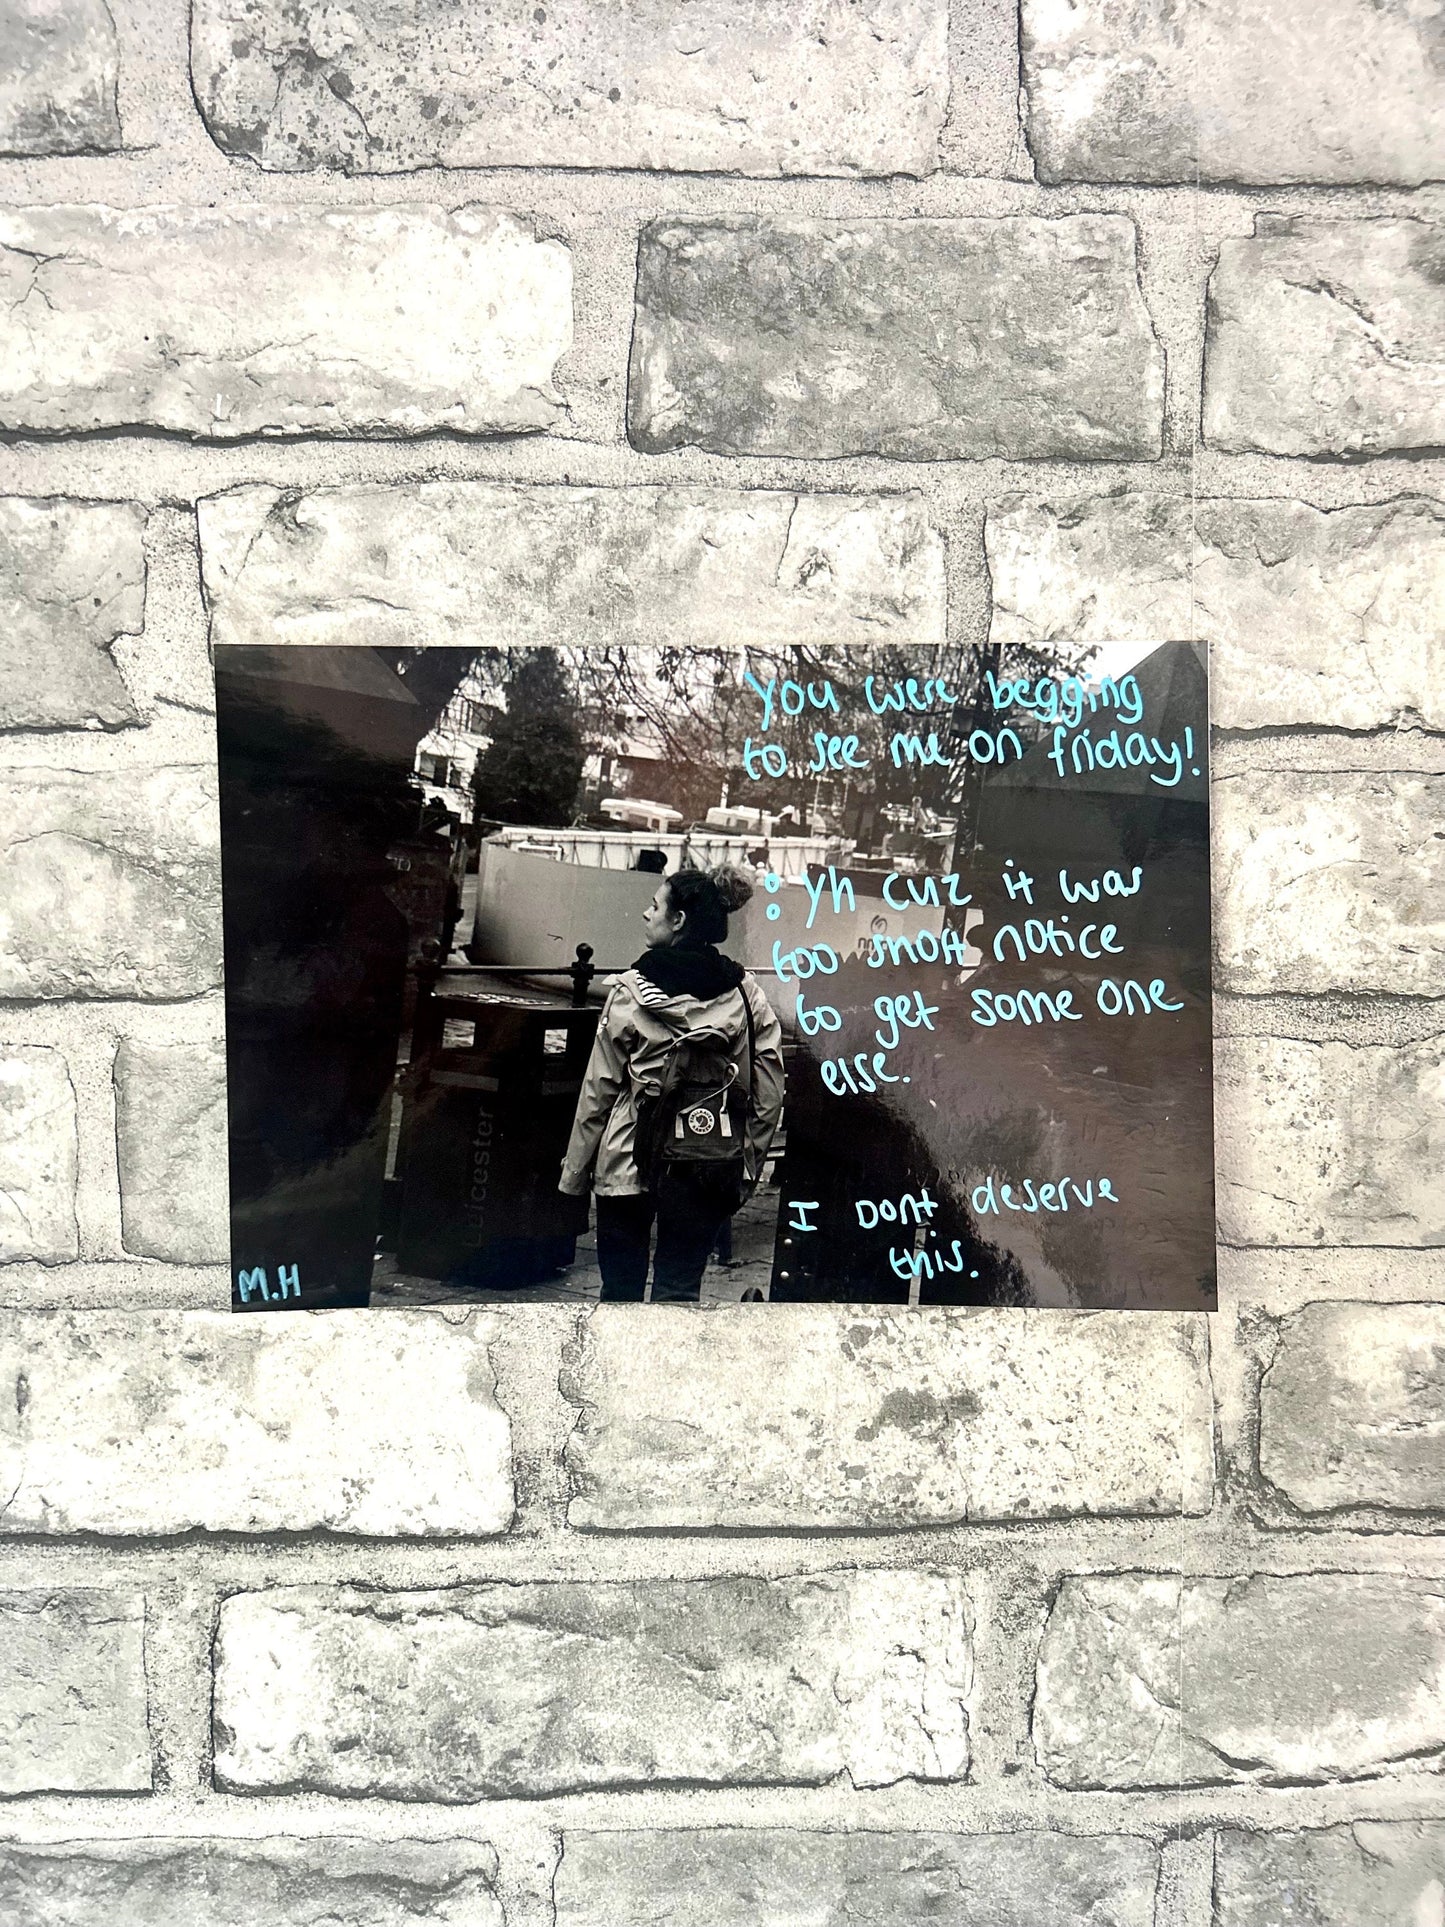 You were begging
to see me on friday!
: Yh cuz it was
too short notice
to get some one
else.
I Dont deserve
this.
Leicester
M.H